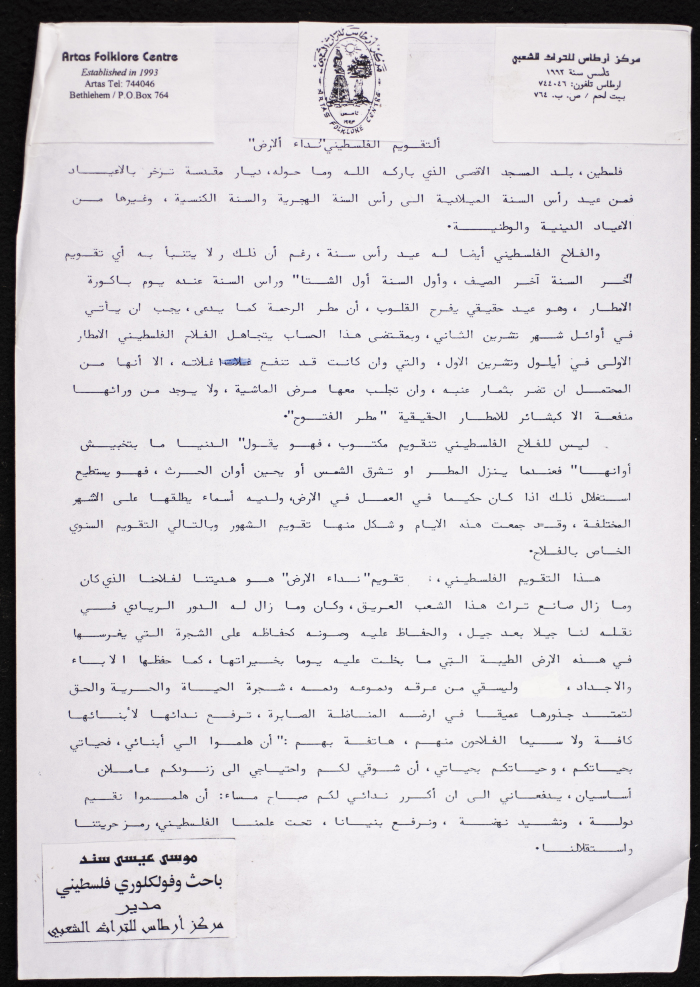 Artas Folklore Centre
Established in 1993
Artas Tel: 744046
Bethlehem / P.O.Box 764
مركز أرطاس للتراث الشعبي
ARTAS FOLKLORE CENTRE
تأسس
١٩٩٣
مركز أرطاس للتراث الشعبي
تأسس سنة ١٩٩٣
ارطاس تلفون: ٧٤٤٠٤٦
بيت لحم / ص. ب. ٧٦٤
التقويم الفلسطيني"نداء الارض"
فلسطين، بلد المسجد الاقصى الذي باركه الله وما حوله، ديار مقدسة تزخر بالاعياد
فمن عيد رأس السنة الميلادية الى رأس السنة الهجرية والسنة الكنسية ، وغيرها من
الاعياد الدينية والوطنية.
والفلاح الفلسطيني أيضا له عيد رأس سنة، رغم أن ذلك ر لا يتنبأ به أي تقويم
"آخر السنة آخر الصيف، وأول السنة أول الشتا" وراس السنة عنده يوم باكورة
الامطار ، وهو عيد حقيقي يفرح القلوب، أن مطر الرحمة كما يدعى، يجب ان يأتي
في أوائل شهر تشرين الثاني، وبمقتضى هذا الحساب يتجاهل الفلاح الفلسطيني الامطار
الاولى في أيلول وتشرين الاول، والتي وان كانت قد تنفع غلاته ، الا أنها من
المحتمل ان تضر بثمار عنبه، وان تجلب معها مرض الماشية، ولا يوجد من ورائها
منفعة الا كبشائر للامطار الحقيقية "مطر الفتوح".
ليس للفلاح الفلسطيني تنقويم مكتوب، فهو يقول" الدنيا ما بتخبيش
أوانها" فعندما ينزل المطر او تشرق الشمس أو يحين أوان الحرث، فهو يستطيع
استغلال ذلك اذا كان حكيما في العمل في الارض، ولديه أسماء يطلقها على الشهر
المختلفة ، وقد جمعت هذه الايام وشكل منها تقويم الشهور وبالتالي التقويم السنوي
الخاص بالفلاح.
هذا التقويم الفلسطيني،: تقويم"نداء الارض" هو هديتنا لفلاحنا الذي كان
وما زال صانع تراث هذا الشعب العريق، وكان وما زال له الدور الريادي في
نقله لنا جيلا بعد جيل، والحفاظ عليه وصونه كحفاظه على الشجرة التي يغرسها
في هذه الارض الطيبة التي ما بخلت عليه يوما بخيراتها، كما حفظها الاباء
والاجداد ، وليسقي من عرقه ودموعه ودمه، شجرة الحياة والحرية والحق
لتمتد جذورها عميقا في ارضه المناضلة الصابرة، ترفع ندائها لأبنائها
كافة ولا سيما الفلاحون منهم، هاتفة بهم :"أن هلموا الي أبنائي، فحياتي
بحياتكم، وحياتكم بحياتي، أن شوقي لكم واحتياجي الى زنودكم عاملان
أساسيان، يدفعاني الى ان أكرر ندائي لكم صباح مساء: أن هلموا نقيم
دولة ، ونشيد نهضة ، ونرفع بنيانا، تحت علمنا الفلسطيني، رمز حريتنا
واستقلالنا.
موسى عيسى سند
باحث وفولكلوري فلسطيني
مدير
مركز أرطاس للتراث الشعبي